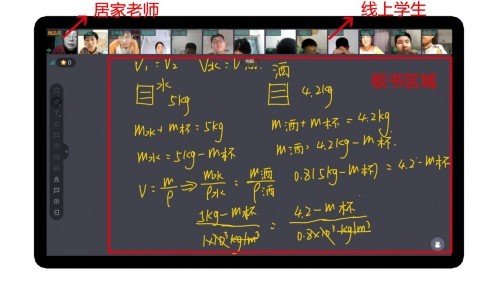 居家老师
线上学生
0
板书区域
V₁=V₂ V水=V酒
水
5kg
酒
4.2kg
m水+m杯=5kg
m酒+m杯=4.2kg
m水=5kg-m杯
m酒=4.2kg-m杯
V=m/ρ⇒m水/ρ水=m酒/ρ酒
0.8(5kg-m杯)=4.2-m杯
kg-m杯/1×10³kg/m³=4.2-m杯/0.8×10³kg/m³